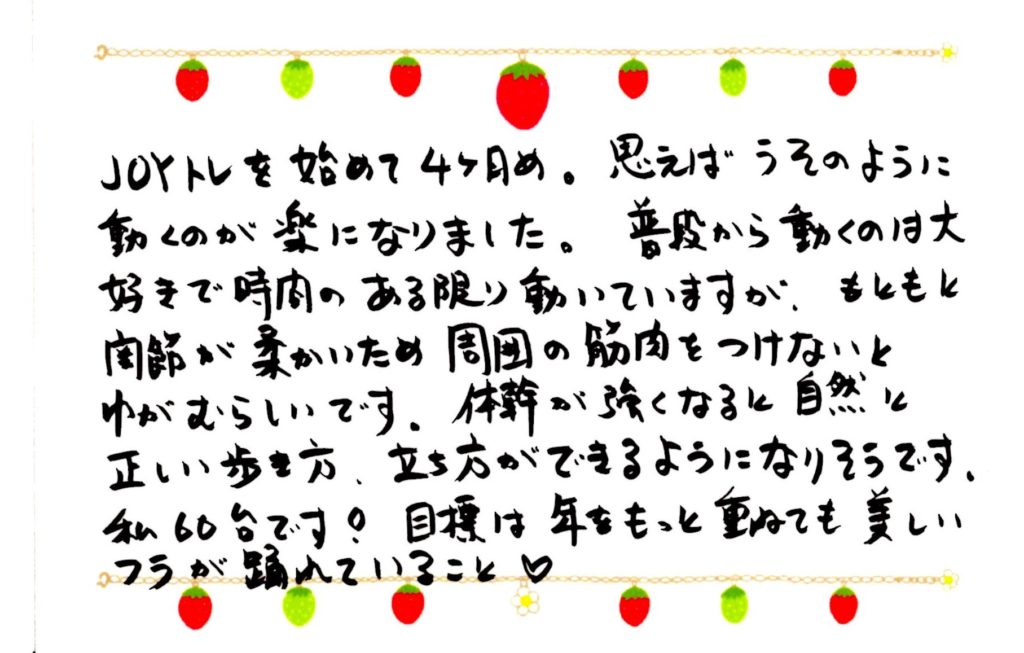 JOYトレを始めて4ヶ月め。思えばうそのように
動くのが楽になりました。普段から動くのは大
好きで時間のある限り動いていますが、もともと
関節が柔かいため周囲の筋肉をつけないと
ゆがむらしいです。体幹が強くなると自然と
正しい歩き方、立ち方ができるようになりそうです。
私60台です！目標は年をもっと重ねても美しい
フラが踊れていること♡